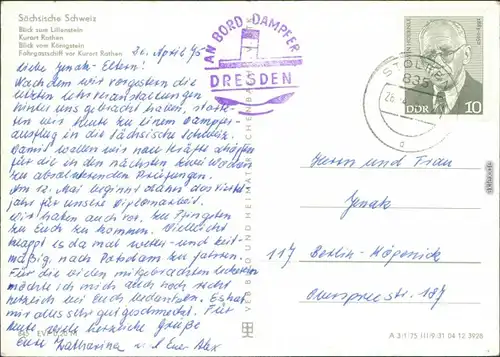 Sächsische Schweiz
Blick zum Lilienstein
Kurort Rathen
Blick vom Königstein
Fahrgastschiff vor Kurort Rathen
26. April 75
Liebe Jenatz-Eltern!
Nachdem wir vorgestern die
letzten Lehrveranstaltungen
hinter uns gebracht haben, starte-
ten wir heute zu einem Dampfer-
ausflug in die Sächsische Schweiz.
Damit wollen wir neue Kräfte schöpfen
für die in den nächsten zwei Wochen
zu absolvierenden Prüfungen.
Am 12. Mai beginnt dann das Viertel-
jahr für unsere Diplomarbeit.
Wir haben auch vor, zu Pfingsten
zu Euch zu kommen. Vielleicht
klappt es da mal wetter- und zeit-
mäßig, nach Potsdam zu fahren.
Für die vielen mitgebrachten
möchte ich mich auch noch recht
herzlich bei Euch bedanken. Es hat
mir alles sehr gut geschmeckt. Für
heute viele herzliche Grüße
Eure Katharina u. Euer Alex
AN BORD DAMPFER
DRESDEN
VERBUND HEIMAT REICHENBACH
STOLPEN
835
DDR 10
Herrn und Frau
Jenatz
117 Berlin-Köpenick
Oberspreestr. 187
A 3/1/75 III/9/31 04 12 3928